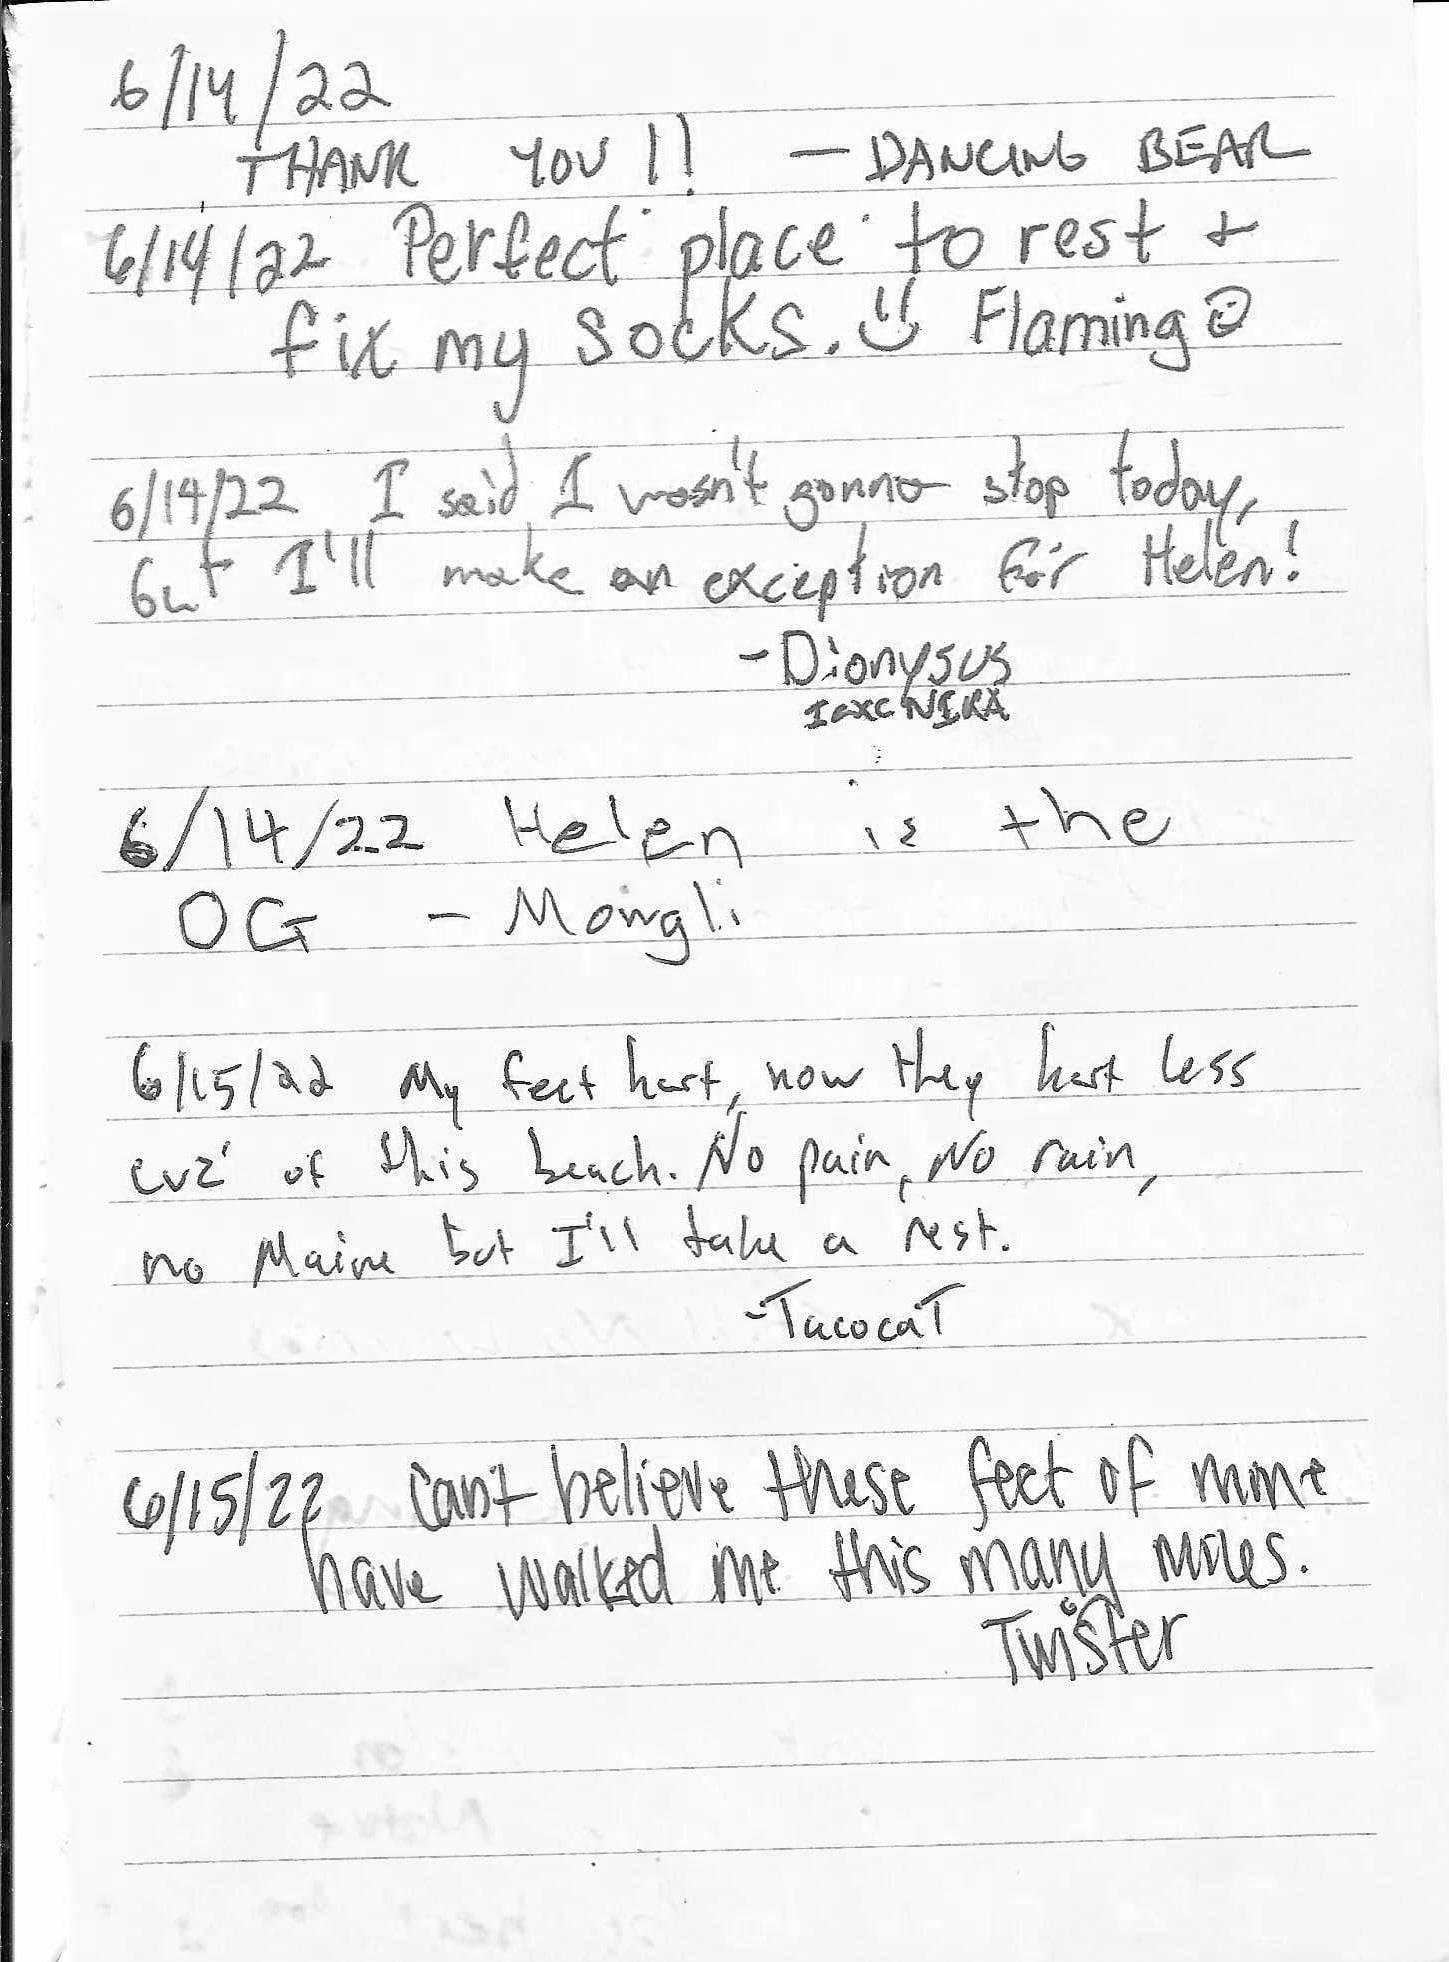 6/14/22
THANK YOU!! — DANCING BEAR
6/14/22 Perfect place to rest +
fix my socks. Flaming
6/14/22 I said I wasn't gonna stop today,
but I'll make an exception for Helen!
-Dionysus
6/14/22 Helen is the
OG - Mowgli
6/15/22 My feet hurt, now they hurt less
cuz' of this beach. No pain, No rain,
no Maine but I'll take a rest.
-TacocaT
6/15/22 Can't believe these feet of mine
have walked me this many miles.
Twister